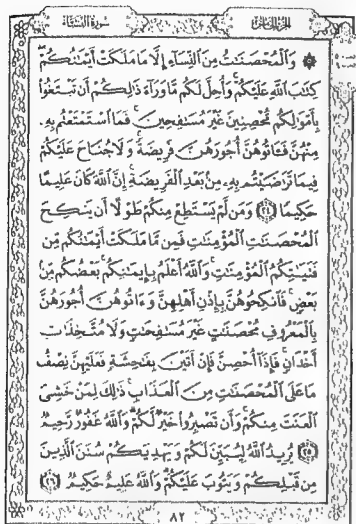 سُورَةُ النِّسَاءِ
الجُزْءُ الخَامِسُ
۞ وَٱلْمُحْصَنَٰتُ مِنَ ٱلنِّسَآءِ إِلَّا مَا مَلَكَتْ أَيْمَٰنُكُمْ
كِتَٰبَ ٱللَّهِ عَلَيْكُمْ وَأُحِلَّ لَكُم مَّا وَرَآءَ ذَٰلِكُمْ أَن تَبْتَغُوا۟
بِأَمْوَٰلِكُم مُّحْصِنِينَ غَيْرَ مُسَٰفِحِينَ فَمَا ٱسْتَمْتَعْتُم بِهِۦ
مِنْهُنَّ فَـَٔاتُوهُنَّ أُجُورَهُنَّ فَرِيضَةً وَلَا جُنَاحَ عَلَيْكُمْ
فِيمَا تَرَٰضَيْتُم بِهِۦ مِنۢ بَعْدِ ٱلْفَرِيضَةِ إِنَّ ٱللَّهَ كَانَ عَلِيمًا
حَكِيمًا ٢٤ وَمَن لَّمْ يَسْتَطِعْ مِنكُمْ طَوْلًا أَن يَنكِحَ
ٱلْمُحْصَنَٰتِ ٱلْمُؤْمِنَٰتِ فَمِن مَّا مَلَكَتْ أَيْمَٰنُكُم مِّن
فَتَيَٰتِكُمُ ٱلْمُؤْمِنَٰتِ وَٱللَّهُ أَعْلَمُ بِإِيمَٰنِكُم بَعْضُكُم مِّنۢ
بَعْضٍ فَٱنكِحُوهُنَّ بِإِذْنِ أَهْلِهِنَّ وَءَاتُوهُنَّ أُجُورَهُنَّ
بِٱلْمَعْرُوفِ مُحْصَنَٰتٍ غَيْرَ مُسَٰفِحَٰتٍ وَلَا مُتَّخِذَٰتِ
أَخْدَانٍ فَإِذَآ أُحْصِنَّ فَإِنْ أَتَيْنَ بِفَٰحِشَةٍ فَعَلَيْهِنَّ نِصْفُ
مَا عَلَى ٱلْمُحْصَنَٰتِ مِنَ ٱلْعَذَابِ ذَٰلِكَ لِمَنْ خَشِىَ
ٱلْعَنَتَ مِنكُمْ وَأَن تَصْبِرُوا۟ خَيْرٌ لَّكُمْ وَٱللَّهُ غَفُورٌ رَّحِيمٌ
٢٥ يُرِيدُ ٱللَّهُ لِيُبَيِّنَ لَكُمْ وَيَهْدِيَكُمْ سُنَنَ ٱلَّذِينَ
مِن قَبْلِكُمْ وَيَتُوبَ عَلَيْكُمْ وَٱللَّهُ عَلِيمٌ حَكِيمٌ ٢٦
٨٢